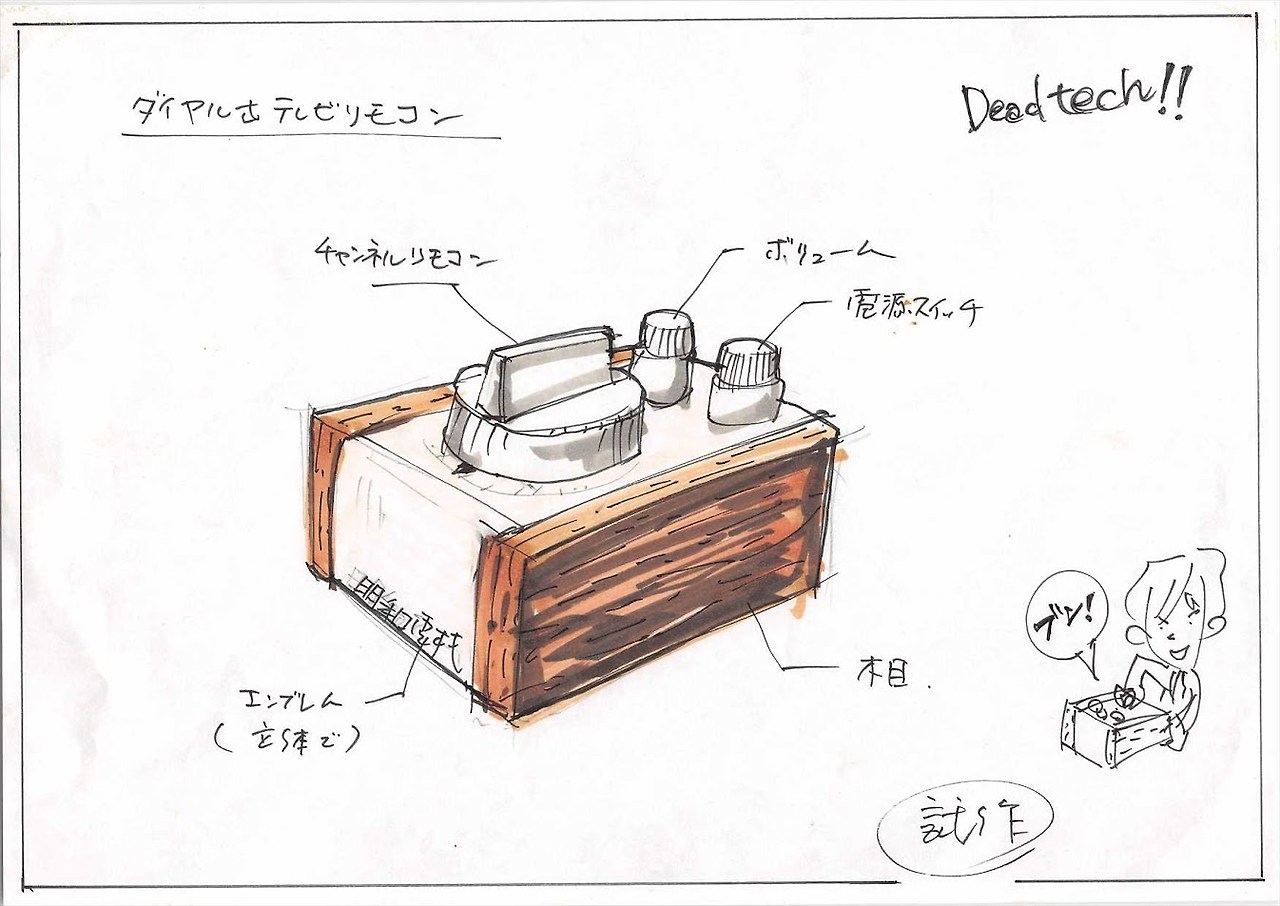 ダイヤル式テレビリモコン
Dead tech!!
チャンネルリモコン
ボリューム
電源スイッチ
明和電機
ブン!
木目.
エンブレム
(立体で)
試作